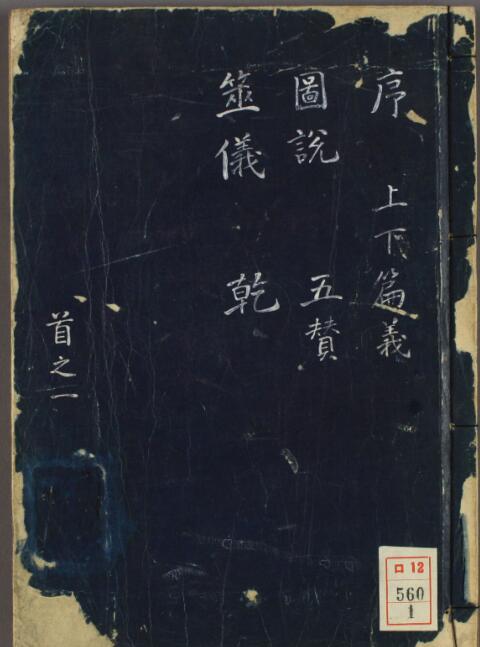 序 上下篇義
圖說 五賛
筮儀 乾
首之一
ロ 12
560
1